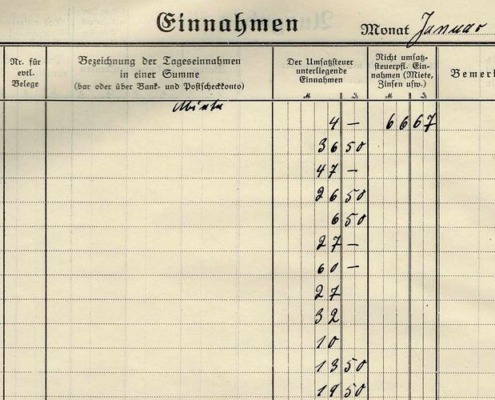 Einnahmen
Monat Januar
Nr. für
evtl.
Belege
Bezeichnung der Tageseinnahmen
in einer Summe
(bar oder über Bank- und Postscheckkonto)
Der Umsatzsteuer
unterliegende
Einnahmen
Nicht umsatz-
steuerpfl. Ein-
nahmen (Miete,
Zinsen usw.)
Bemerk
Miete
4 — 66 67
36 50
47 —
26 50
6 50
27 —
60 —
27
32
10
13 50
19 50